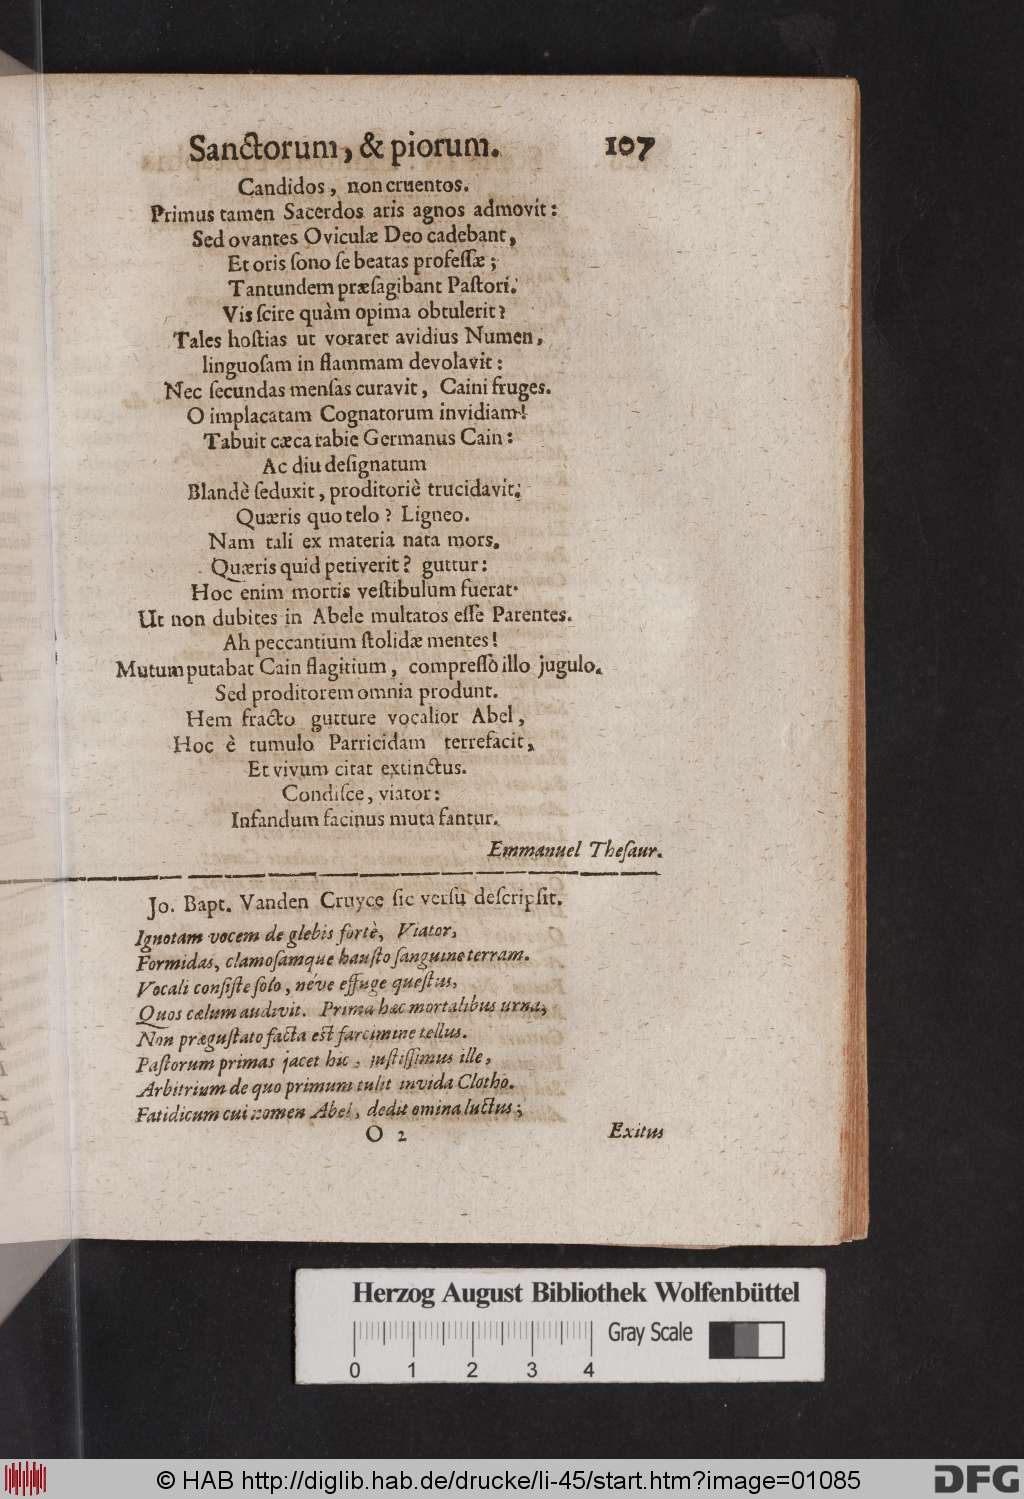 Sanctorum, & piorum. 107
Candidos, non cruentos.
Primus tamen Sacerdos aris agnos admovit:
Sed ovantes Oviculæ Deo cadebant,
Et oris ſono ſe beatas profeſſæ;
Tantundem præſagibant Paſtori.
Vis ſcire quàm opima obtulerit?
Tales hoſtias ut voraret avidius Numen,
linguoſam in flammam devolavit:
Nec ſecundas menſas curavit, Caini fruges.
O implacatam Cognatorum invidiam!
Tabuit cæca rabie Germanus Cain:
Ac diu deſignatum
Blandè ſeduxit, proditoriè trucidavit.
Quæris quo telo? Ligneo.
Nam tali ex materia nata mors.
Quæris quid petiverit? guttur:
Hoc enim mortis veſtibulum fuerat.
Ut non dubites in Abele multatos eſſe Parentes.
Ah peccantium ſtolidæ mentes!
Mutum putabat Cain flagitium, compreſſo illo jugulo.
Sed proditorem omnia produnt.
Hem fracto gutture vocalior Abel,
Hoc è tumulo Parricidam terrefacit,
Et vivum citat extinctus.
Condiſce, viator:
Infandum facinus muta fantur.
Emmanuel Theſaur.
Jo. Bapt. Vanden Cruyce ſic verſu deſcripſit.
Ignotam vocem de glebis fortè, Viator,
Formidas, clamoſamque hauſto ſanguine terram.
Vocali conſiſte ſolo, néve effuge queſtus,
Quos cælum audivit. Prima hæc mortalibus urna,
Non præguſtato facta eſt farcimine tellus.
Paſtorum primas jacet hic, juſtiſſimus ille,
Arbitrium de quo primum tulit invida Clotho.
Fatidicum cui nomen Abel, dedit omina luctus;
O 2 Exitus
Herzog August Bibliothek Wolfenbüttel
Gray Scale
0 1 2 3 4
© HAB http://diglib.hab.de/drucke/li-45/start.htm?image=01085
DFG